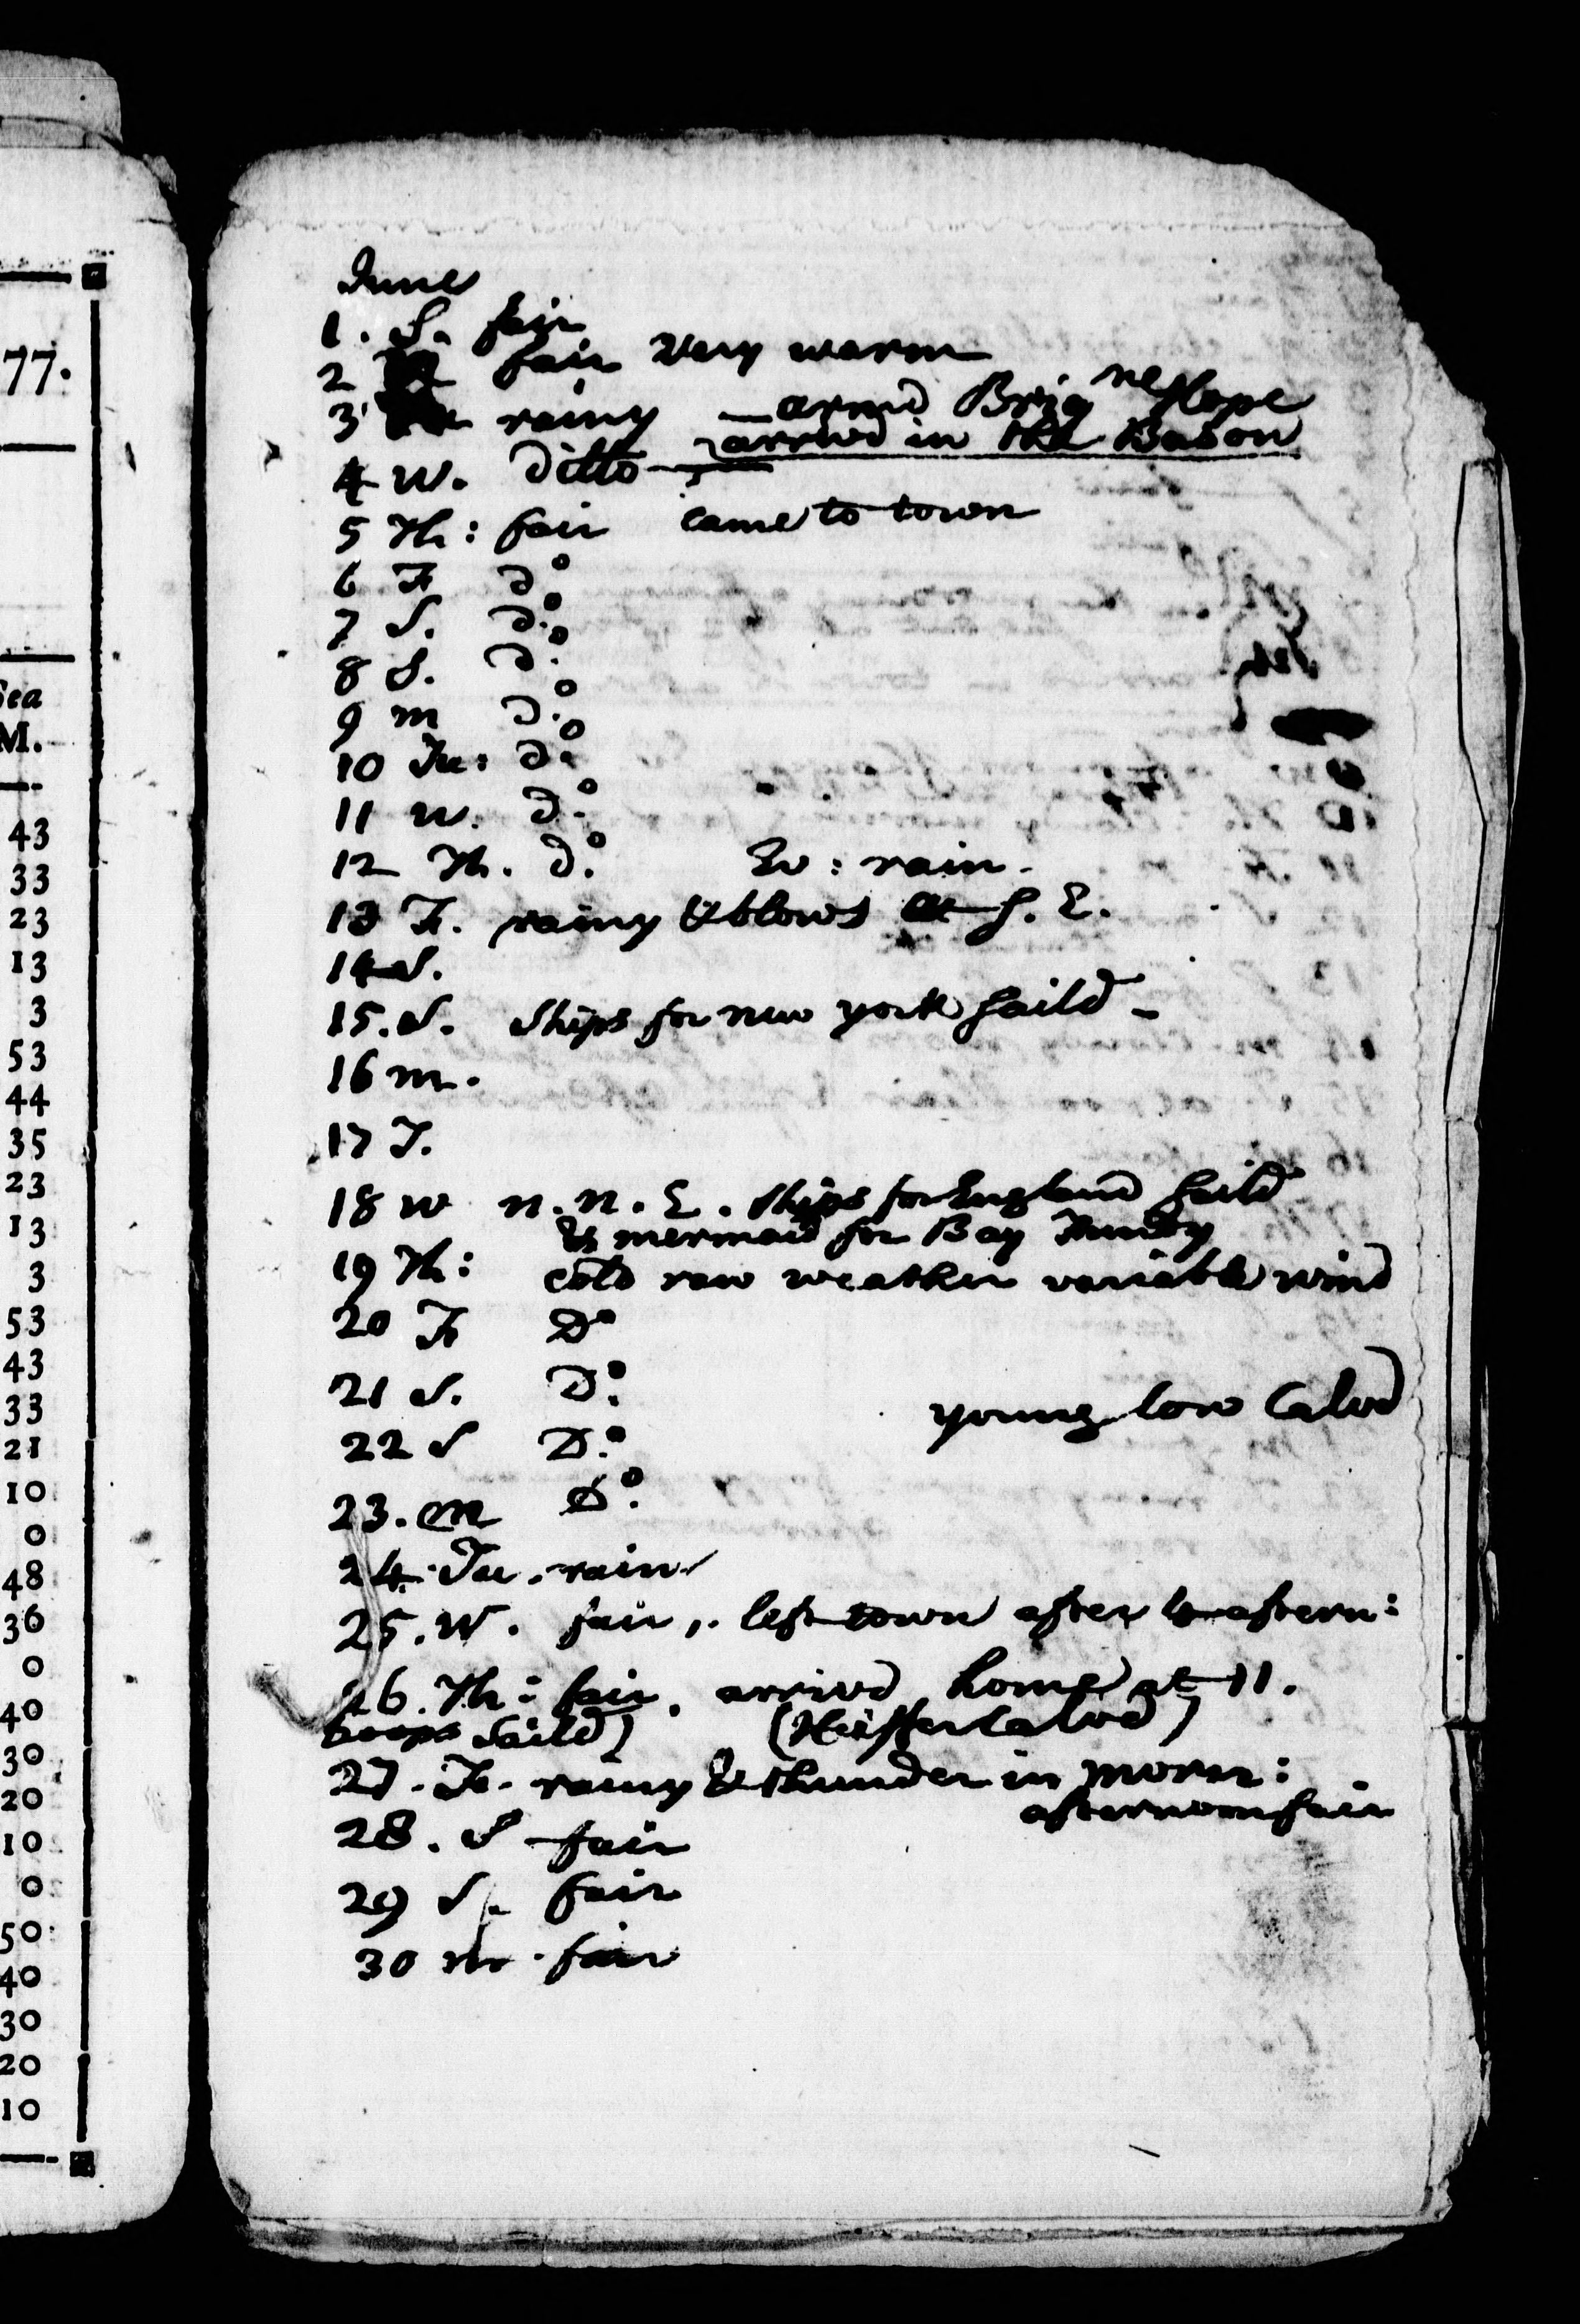 77.
Sea
M.
43
33
23
13
3
53
44
35
23
13
3
53
43
33
21
10
0
48
36
0
40
30
20
10
0
50
40
30
20
10
June
1. S. fair
2 fair very warm
3 rainy — arrivd Brig Hope
4 W. Ditto — arrived in the Bason
5 Th: fair came to town
6 F do
7 S. do
8 S. do
9 m do
10 Tu: do
11 W. do
12 Th. do Ev: rain.
13 F. rainy & blows at S. E.
14 S.
15. S. Ships for new york saild –
16 m.
17 T.
18 W n. n. E. Ships for England saild
& mermaid for Bay Fundy
19 Th: cold raw weather variable wind
20 F Do
21 S. Do
young Cow Calvd
22 S Do
23. M Do
24. Tu. rain
25. W. fair, left town after 4 aftern:
26. Th: fair. arrivd home at 11.
saild) (Heiffer Calvd)
27. F. rainy & thunder in morn:
afternoon fair
28. S fair
29 S. fair
30 m. fair